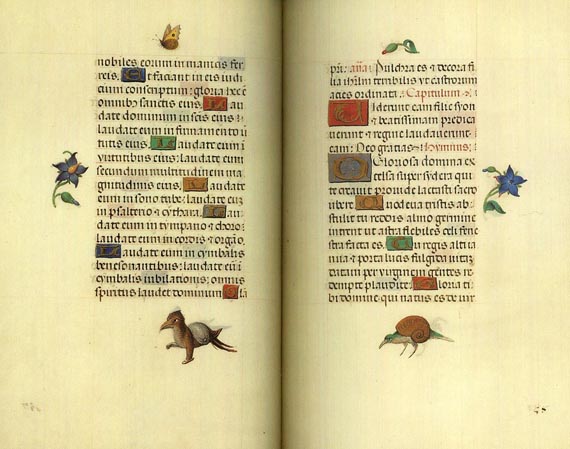 nobiles eorum in manicis fer
reis. Et faciant in eis iudi
cium conscriptum: gloria hec e
omnibus sanctis eius. Lau
date dominum in sctis eius:
laudate eum in firmamento u
tutis eius. Laudate eum i
virtutibus eius: laudate eum
secundum multitudinem ma
gnitudinis eius. Laudate
eum in sono tube: laudate eum
in psalterio et cythara. Lau
date eum in tympano et choro:
laudate eum in cordis et orgāo.
Laudate eum in cymbalis
benesonantibus: laudate eū i
cymbalis iubilationis: omnis
spiritus laudet dominum Gla
pri: aña: Pulchra es et decora fi
lia ihrlm terribilis vt castrorum
acies ordinata. Capitulum
Uiderunt eam filie syon
et beatissimam predica
uerunt et regine laudauerunt
eam: Deo gratias Hymnus:
O Gloriosa domina ex
celsa super sydera qui
te creauit prouide lactasti sacro
ubere. Quod eua tristis ab
stulit tu reddis almo germine
intrent ut astra flebiles celi fene
stra facta es. Tu regis alti ia
nua et porta lucis fulgida uitā
datam per uirginem gentes re
dempte plaudite. Gloria ti
bi domine qui natus es de uir